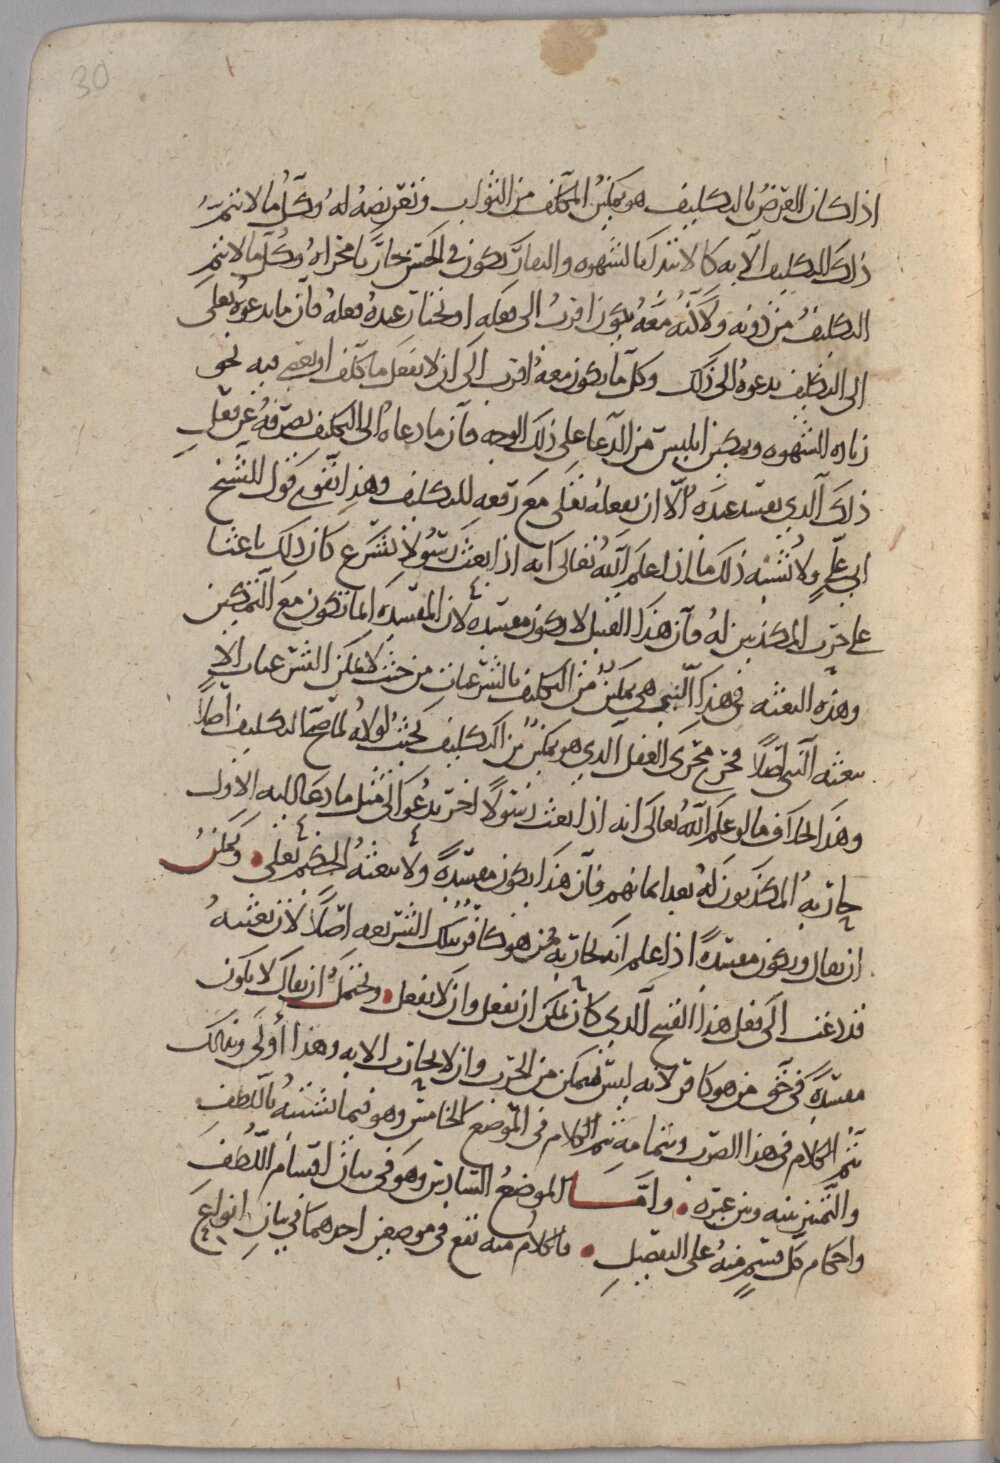 30
اذا كان الغرض بالتكليف هو تمكين المكلف من الثواب وتعريضه له وكل ما لا يتم
ذلك التكليف الا به كالابتداء بالشهوه والنفار يكون في الحسن جاريا مجراه وكل ما لا يتم
التكليف من دونه ولانه معه يكون اقرب الى فعله او يختار عنده فعله فان ما يدعوه تعلى
الى التكليف يدعوه الى ذلك وكل ما يكون معه اقرب الى ان لا يفعل ما كلف او يعصي فيه نحو
زياده الشهوه وتمكين ابليس من الدعا على ذلك الوجه فان ما دعاه الى التكليف يصرفه عن فعل
ذلك الذي يفسد عنده الا ان يفعله تعلى مع رفعه للتكليف وهذا تقويه قول للشيخ
ابي علي ولا يشبه ذلك ما اذا علم الله تعالى انه اذا بعث رسولا بشرع كان ذلك باعثا
على حرب المكذبين له فان هذا القبيل لا يكون مفسده لان المفسده انما تكون مع التمكين
وهذه البعثه في هذا النبي هي تمكين من التكليف بالشرعيات من حيث لا يمكن الشرعيات الا
ببعثه النبي اصلا فجرى مجرى العقل الذي هو تمكين من التكليف بحيث لولاه لما صح التكليف اصلا
وهذا بخلاف ما لو علم الله تعالى انه اذا بعث رسولا اخر يدعو الى مثل ما دعا اليه الاول
حاربه المكذبون له بعد ايمانهم فان هذا يكون مفسدة ولا يبعثه الحكيم تعلى ويمكن
ان يقال ويكون مفسدة اذا علم انه يحاربه من هو كافر بتلك الشريعه اصلا لان بعثته
قد دعت الى فعل هذا القبيح الذي كان يمكن ان يفعل وان لا يفعل ويحتمل ان يقال لا يكون
مفسدة في حق من هو كافر لانه ليس يتمكن من الحرب وان لا يحارب الا به وهذا أولى وبذلك
يتم الكلام في هذا الضرب وبتمامه تم الكلام في الموضع الخامس وهو فيما يشتبه باللطف
والتمييز بينه وبين غيره واما الموضع السادس وهو في بيان اقسام اللطف
واحكام كل قسم منه على التفصيل فالكلام منه يقع في موضعين احدهما في بيان انواع